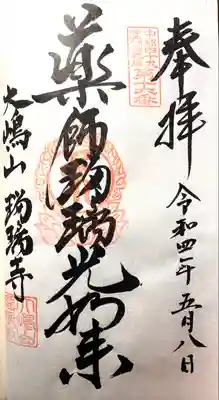 奉拝
令和四年五月八日
中部四十九
第十六番
藥師瑠璃光如来
大嶋山 瑠璃寺